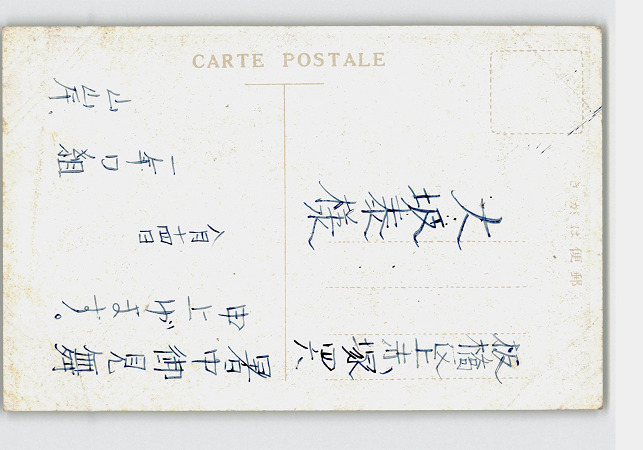 CARTE POSTALE
郵便はがき
板橋区上赤塚四六
大坂泰様
暑中御見舞
申上げます。
八月十四日
二年ロ組
山岸